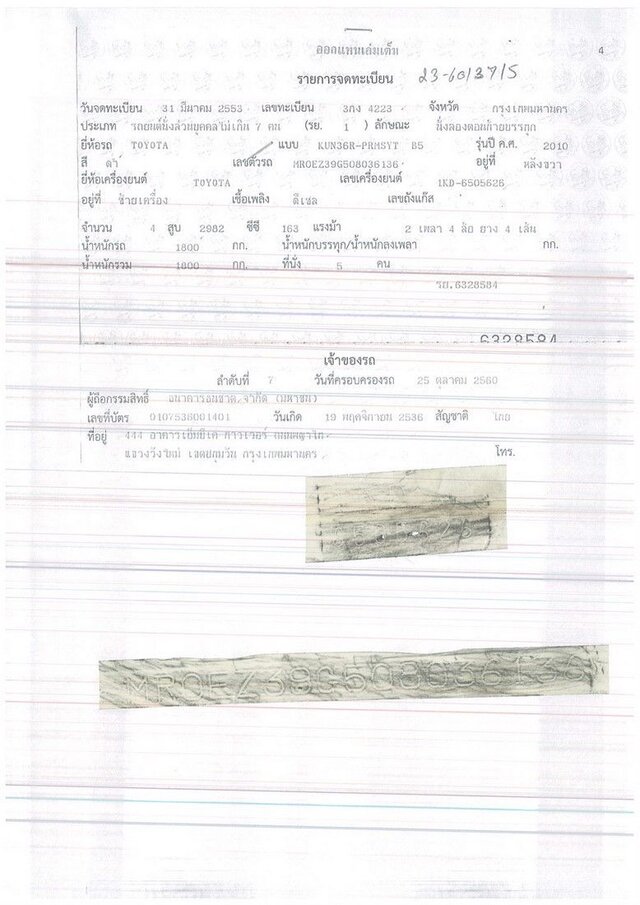 ออกแทนเล่มเต็ม 4
รายการจดทะเบียน 23-60/3715
วันจดทะเบียน 31 มีนาคม 2553 เลขทะเบียน 3กง 4223 จังหวัด กรุงเทพมหานคร
ประเภท รถยนต์นั่งส่วนบุคคลไม่เกิน 7 คน (รย. 1 ) ลักษณะ นั่งสองตอนท้ายบรรทุก
ยี่ห้อรถ TOYOTA แบบ KUN36R-PRMSYT B5 รุ่นปี ค.ศ. 2010
สี ดำ เลขตัวรถ MR0EZ39G508036136 อยู่ที่ หลังขวา
ยี่ห้อเครื่องยนต์ TOYOTA เลขเครื่องยนต์ 1KD-6505626
อยู่ที่ ซ้ายเครื่อง เชื้อเพลิง ดีเซล เลขถังแก๊ส
จำนวน 4 สูบ 2982 ซีซี 163 แรงม้า 2 เพลา 4 ล้อ ยาง 4 เส้น
น้ำหนักรถ 1800 กก. น้ำหนักบรรทุก/น้ำหนักลงเพลา กก.
น้ำหนักรวม 1800 กก. ที่นั่ง 5 คน
รย.6328584
6328584
เจ้าของรถ
ลำดับที่ 7 วันที่ครอบครองรถ 25 ตุลาคม 2560
ผู้ถือกรรมสิทธิ์ ธนาคารธนชาต จำกัด (มหาชน)
เลขที่บัตร 0107536001401 วันเกิด 19 พฤศจิกายน 2536 สัญชาติ ไทย
ที่อยู่ 444 อาคารเอ็มบีเค ทาวเวอร์ ถนนพญาไท
แขวงวังใหม่ เขตปทุมวัน กรุงเทพมหานคร โทร.
MR0EZ39G508036136